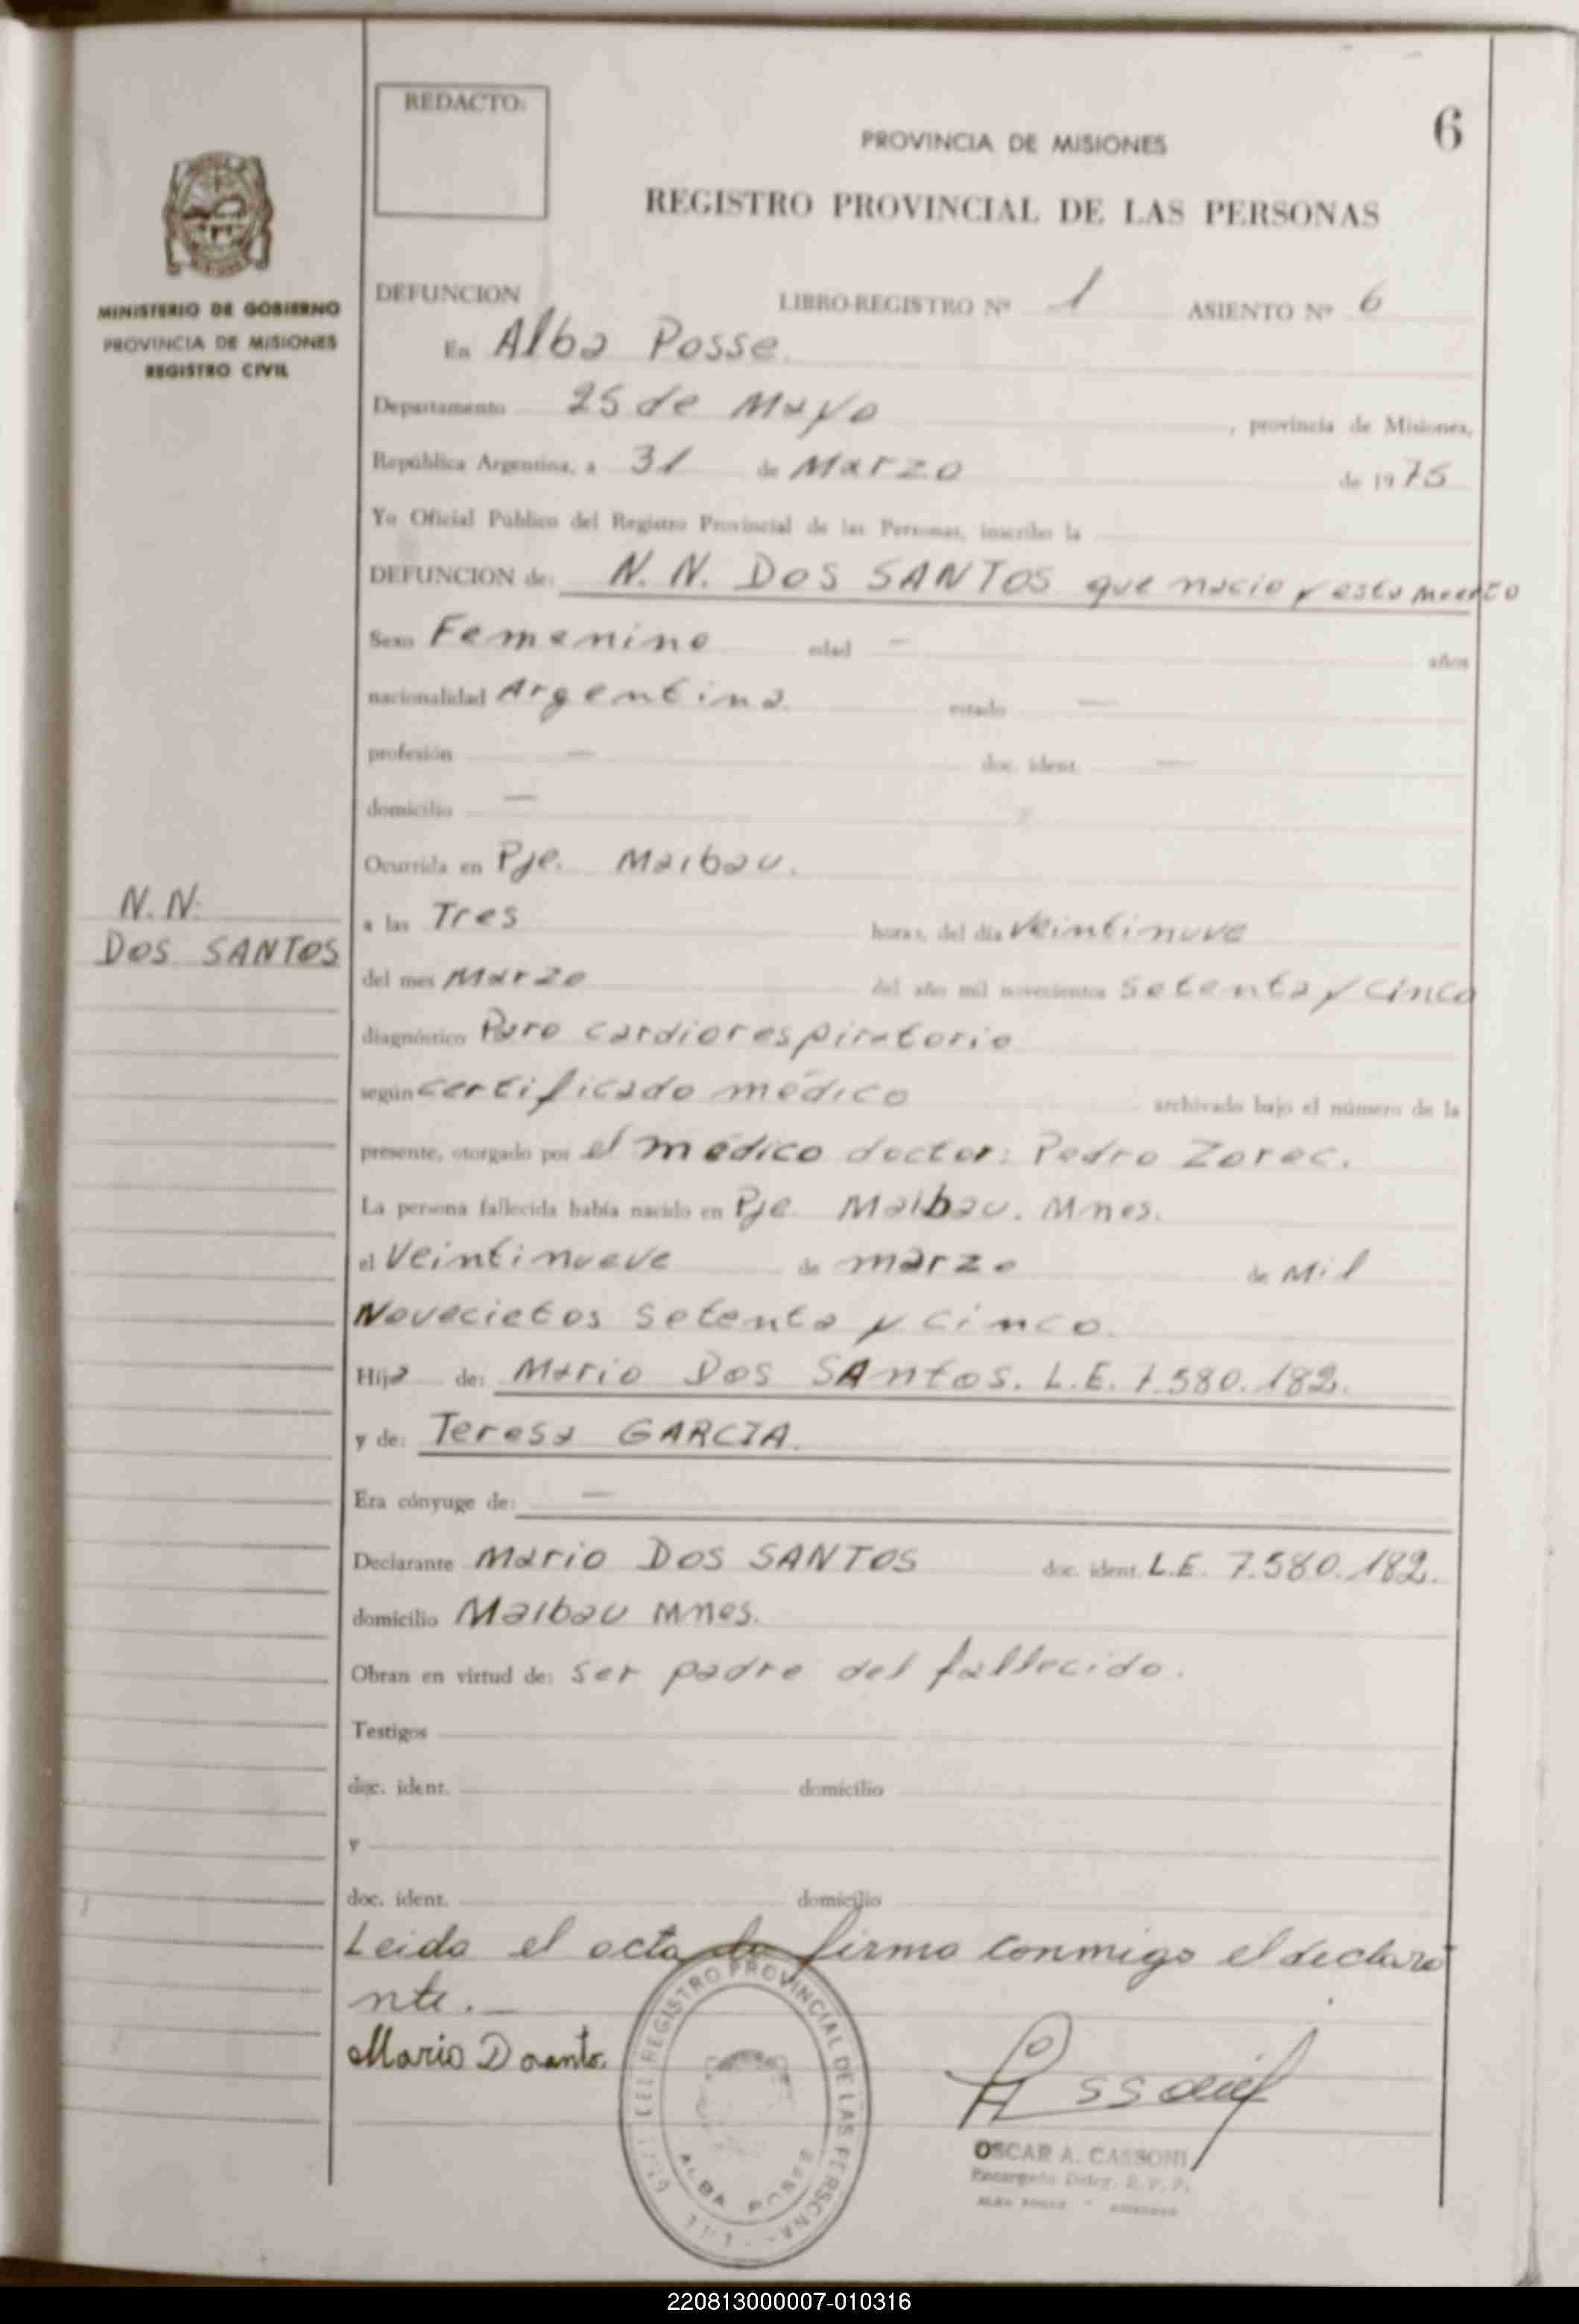 REDACTO:
6
PROVINCIA DE MISIONES
REGISTRO PROVINCIAL DE LAS PERSONAS
MINISTERIO DE GOBIERNO
PROVINCIA DE MISIONES
REGISTRO CIVIL
DEFUNCION LIBRO-REGISTRO Nº 1 ASIENTO Nº 6
En Alba Posse.
Departamento 25 de Mayo, provincia de Misiones,
República Argentina, a 31 de Marzo de 1975
Yo Oficial Público del Registro Provincial de las Personas, inscribo la
DEFUNCION de: N. N. DOS SANTOS que nacio y esta muerto
Sexo Femenino edad — años
nacionalidad Argentina. estado —
profesión — doc. ident. —
domicilio —
Ocurrida en Pje. Maibau.
N. N.
DOS SANTOS
a las Tres horas, del día Veintinuve
del mes Marzo del año mil novecientos setenta y cinco
diagnóstico Paro cardiorespiratorio
según certificado médico archivado bajo el número de la
presente, otorgado por el médico doctor: Pedro Zorec.
La persona fallecida había nacido en Pje. Malbau. Mnes.
el Veintinueve de marzo de Mil
Novecietos setenta y cinco.
Hija de: Mario Dos SAntos. L.E. 7.580.182.
y de: Teresa GARCIA.
Era cónyuge de: —
Declarante Mario DOS SANTOS doc. ident. L.E. 7.580.182.
domicilio Malbau Mnes.
Obran en virtud de: ser padre del fallecido.
Testigos
doc. ident. domicilio
y
doc. ident. domicilio
Leida el acta la firma conmigo el declara
nte.
Mario D
DEL REGISTRO PROVINCIAL DE LAS PERSONAS
ALBA POSSE
OSCAR A. CASSONI
Encargado Deleg. R. P. P.
ALBA POSSE - MISIONES
220813000007-010316